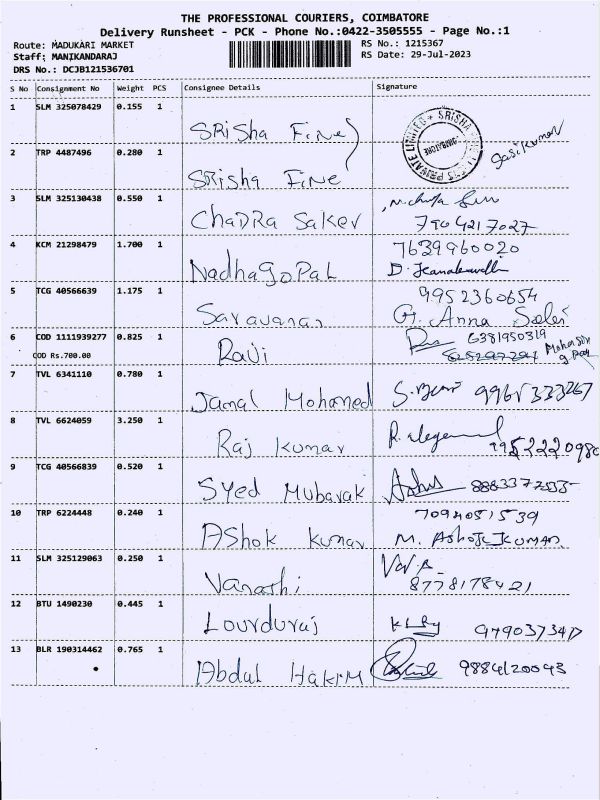 THE PROFESSIONAL COURIERS, COIMBATORE
Delivery Runsheet - PCK - Phone No.:0422-3505555 - Page No.:1
Route: MADUKARI MARKET RS No.: 1215367
Staff: MANIKANDARAJ RS Date: 29-Jul-2023
DRS No.: DCJB121536701
S No Consignment No Weight PCS Consignee Details Signature
1 SLM 325078429 0.155 1
SRisha Fine
2 TRP 4487496 0.280 1 Sasikumar
SRisha Fine
3 SLM 325130438 0.550 1
ChaDRa Saker 7904217027
4 KCM 21298479 1.700 1 7639960020
NadhagoPal D.
5 TCG 40566639 1.175 1 9952360654
Saravanan G. Anna Selei
6 COD 1111939277 0.825 1 6381950319
COD Rs.700.00 Raji
7 TVL 6341110 0.780 1
Jamal Mohamed
8 TVL 6624059 3.250 1
Raj kumar
9 TCG 40566839 0.520 1
Syed Mubarak
10 TRP 6224448 0.240 1
Ashok kumar M. ASHOK KUMAR
11 SLM 325129063 0.250 1
Vanathi 8778178421
12 BTU 1490230 0.445 1
Lourduraj 9790373417
13 BLR 190314462 0.765 1
Abdul Hakim 9884120093